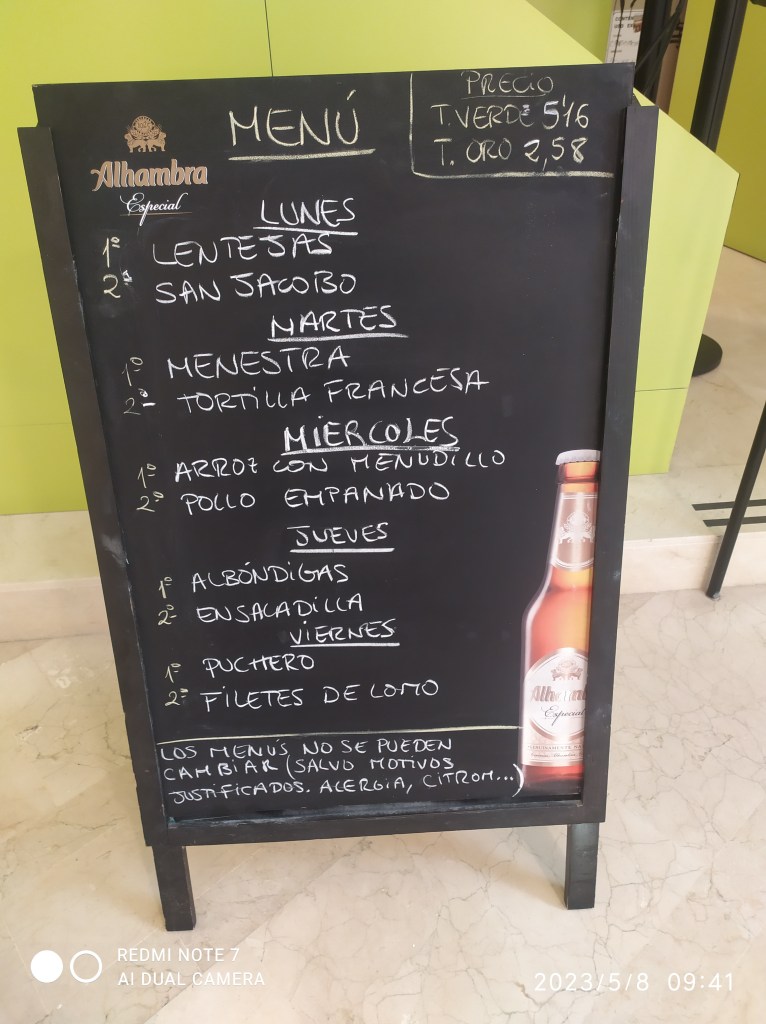 MENÚ
PRECIO
T. VERDE 5'16
T. ORO 2,58
Alhambra
Especial
LUNES
1º LENTEJAS
2º SAN JACOBO
MARTES
1º MENESTRA
2º TORTILLA FRANCESA
MIERCOLES
1º ARROZ CON MENUDILLO
2º POLLO EMPANADO
JUEVES
1º ALBÓNDIGAS
2º ENSALADILLA
VIERNES
1º PUCHERO
2º FILETES DE LOMO
LOS MENÚS NO SE PUEDEN
CAMBIAR (SALVO MOTIVOS
JUSTIFICADOS. ALERGIA, CITROM...)
Alhambra
Especial
REDMI NOTE 7
AI DUAL CAMERA
2023/5/8 09:41